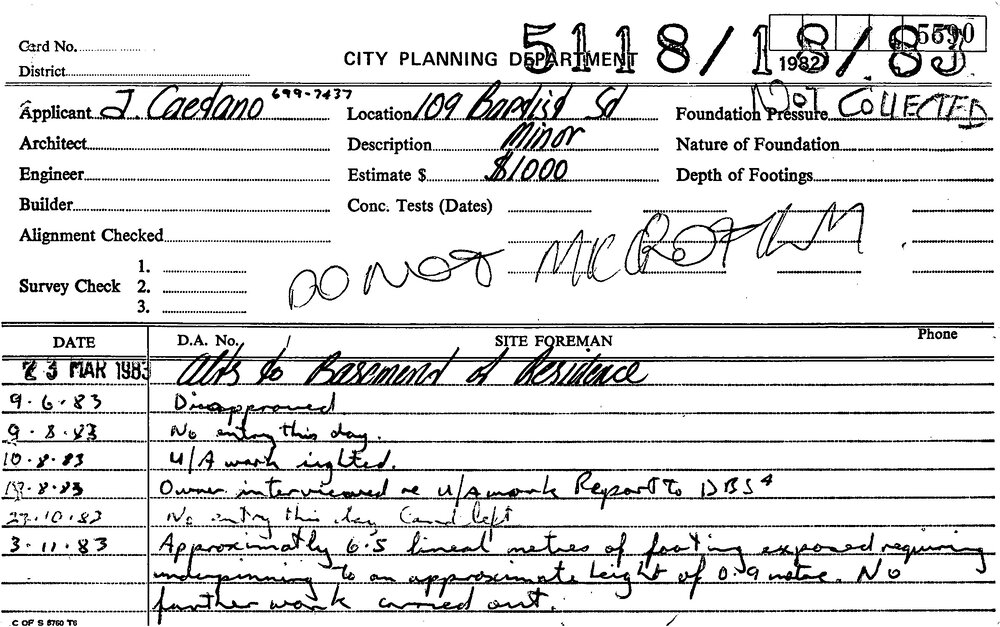 Card No.
5118/18/83
5590
CITY PLANNING DEPARTMENT 1982
District
Applicant J. Caedano 699-7437 Location 109 Baptist Sd Foundation Pressure NOT COLLECTED
Architect Description Minor Nature of Foundation
Engineer Estimate $ $1000 Depth of Footings
Builder Conc. Tests (Dates)
Alignment Checked
DO NOT MICROFILM
1.
Survey Check 2.
3.
DATE D.A. No. SITE FOREMAN Phone
23 MAR 1983 Alts to Basement of Residence
9.6.83 Disapproved
9.8.83 No entry this day.
10.8.83 U/A work sighted.
8.83 Owner interviewed re u/a work Report to DBS
27.10.83 No entry this day Card left
3.11.83 Approximatly 6.5 lineal metres of footing exposed requiring
underpinning to an approximate height of 0.9 metre. No
further work carried out.
C OF S 8760 T6